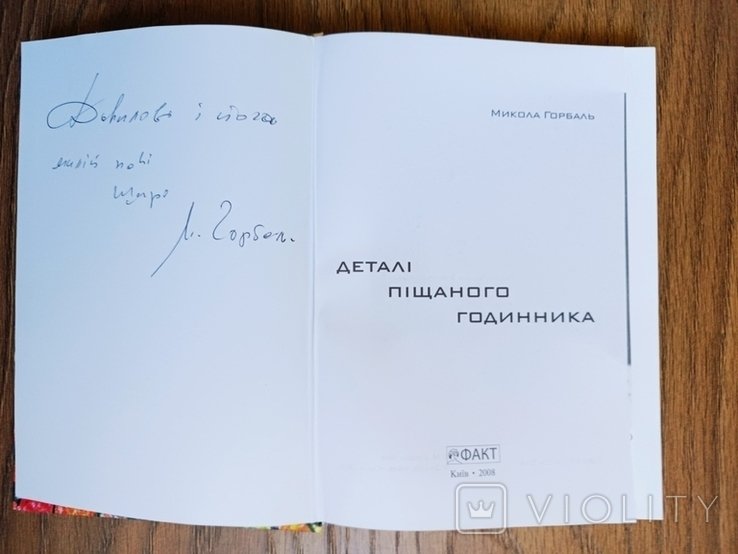 і його
милій пані
Щиро
М. Горбаль
МИКОЛА ГОРБАЛЬ
ДЕТАЛІ
ПІЩАНОГО
ГОДИННИКА
ФАКТ
Київ • 2008
VIOLITY